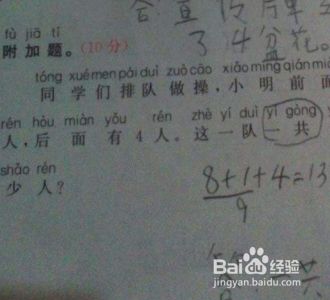 合 直 没 后 单
3 4 盆 花。
fù jiā tí
附 加 题。(10分)
tóng xué men pái duì zuò cāo xiǎo míng qián miàn
同 学 们 排 队 做 操，小 明 前 面
rén hòu miàn yǒu rén zhè yí duì yí gòng
人，后 面 有 4 人。这 一 队 一 共
shǎo rén
少 人？
8+1+4=13
9
共
Baidu 百度经验
jingyan.baidu.com